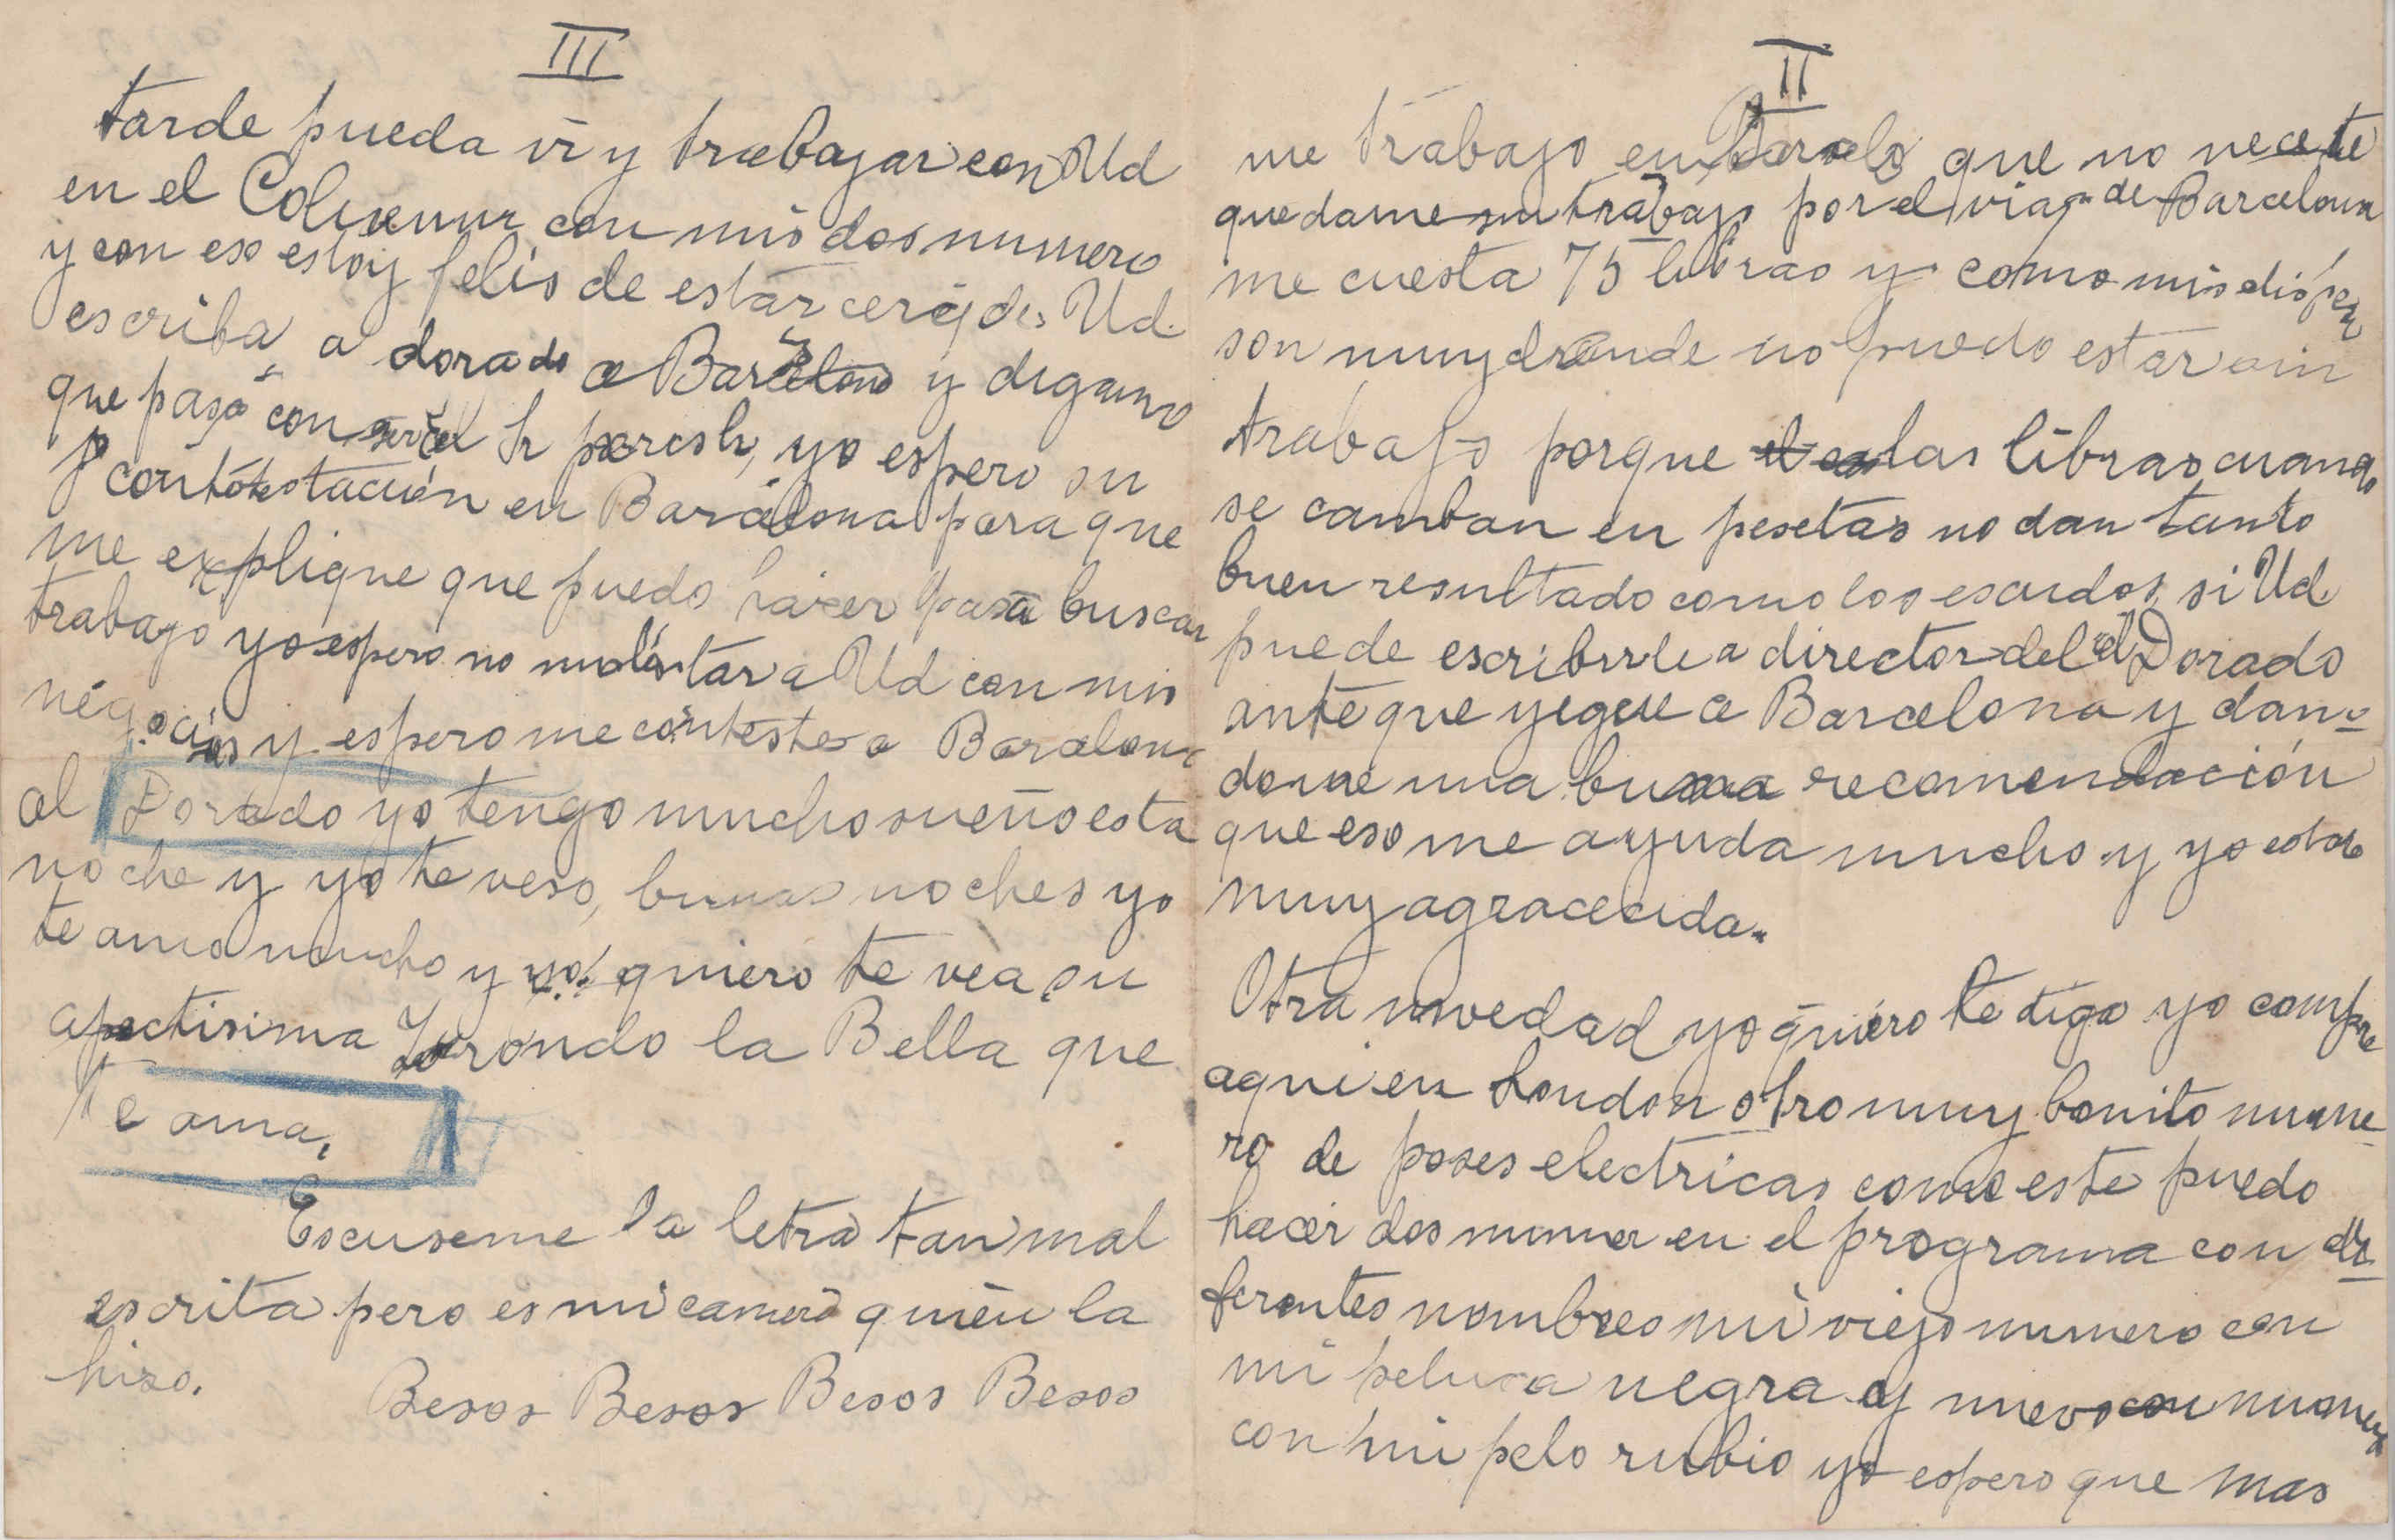 II
me trabajo en que no necete
quedame sin trabajo por el viaje de Barcelona
me cuesta 75 libras y como mis dispen
son muy drande no puedo estar sin
trabajo porque las libras cuando
se camban en pesetas no dan tanto
buen resultado como los escudos, si Ud
puede escribirle a director del el Dorado
ante que yegue a Barcelona y dan-
dome una buena recomendación
que eso me ayuda mucho y yo estare
muy agracecida.
Otra novedad yo quiero te diga yo compre
aqui en London otro muy bonito nume-
ro de poses electricas como este puedo
hacer dos numer en el programa con di-
ferentes nombres mi viejo numero con
mi peluca negra y nuevo numero
con mi pelo rubio yo espero que mas
III
tarde pueda ir y trabajar con Ud
en el con mis dos numero
y con eso estoy felis de estar cerca de Ud.
escriba a dorado a Barcelona y digame
que pasa con el Sr yo espero su
contestación en Barcelona para que
me explique que puedo haxer para buscar
trabajo yo espero no molestar a Ud con mis
négocios y espero me conteste a Barcelona
al Dorado yo tengo mucho sueño esta
noche y yo te veso, buenas noches yo
te amo mucho y yo quiero te vea su
apectisima la Bella que
te ama,
Escuseme la letra tan mal
escrita pero es mi camera quien la
hiso.
Besos Besos Besos Besos